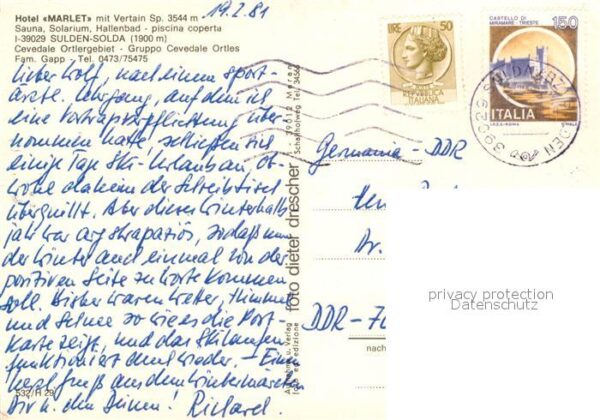 19.2.81
Hotel «MARLET» mit Vertain Sp. 3544 m
Sauna, Solarium, Hallenbad - piscina coperta
I-39029 SULDEN-SOLDA (1900 m)
Cevedale Ortlergebiet - Gruppo Cevedale Ortles
Fam. Gapp - Tel. 0473/75475
Lieber Wolf, nach einem sport-
ärztl. Lehrgang, auf dem ich
eine Vortragsverpflichtung über-
nommen hatte, schließen sich
einige Tage Ski-Urlaub an, ob-
wohl daheim der Schreibtisch
überquillt. Aber dieses Winterhalb-
jahr war arg strapaziös, sodaß nun
der Winter auch einmal von der
positiven Seite zu Worte kommen
soll. Bisher waren Wetter, Stimmung
und Schnee so wie es die Post-
karte zeigt, und das Skilaufen
funktioniert auch wieder. - Einen
herzl. Gruß aus dem Wintermärchen
Dir u. den Deinen! Richard
532/H 29
foto dieter drescher
39012 Meran
Tel. 34566
LIRE 50
REPUBBLICA
ITALIANA
CASTELLO DI
MIRAMARE - TRIESTE
150
ITALIA
39029
Germania - DDR
Dr.
DDR-
nach
privacy protection
Datenschutz